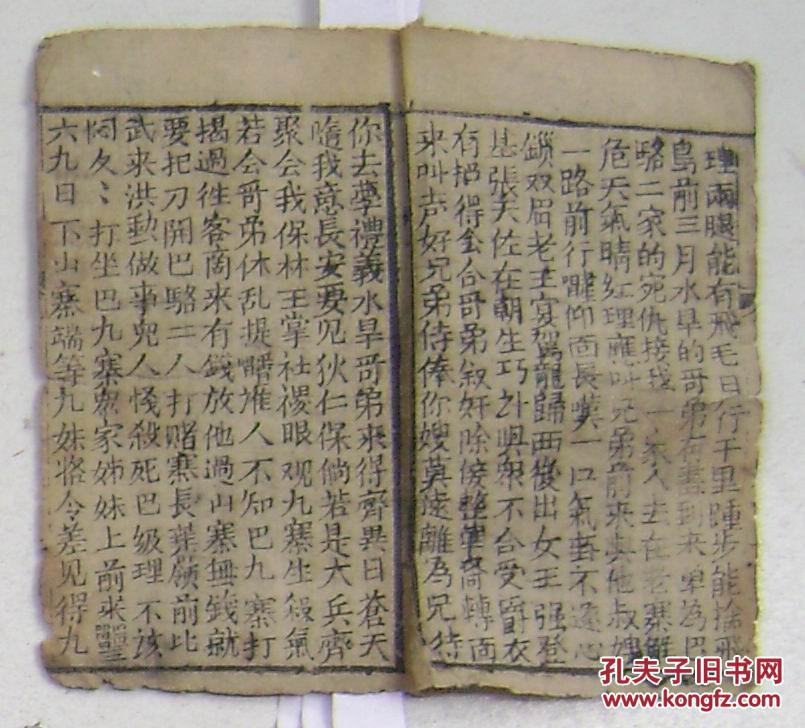 理兩腿能有飛毛日行千里陣步能擒飛
鳥前三月水旱的哥弟有書到來單為巴
駱二家的冤仇接我一家人去在老寨解
危天氣晴紅理應叫兄弟前來與他叔嫂
一路前行嘴仰面長嘆一口氣不遠心
鎖双眉老王宴駕龍歸西後出女王强登
基張天佐在朝生巧計與眾不合受爵衣
有招得金合哥弟叙奸除傍整軍喬轉面
來叫声好兄弟侍俸你嫂莫遠離為兄待
你去學禮義水旱哥弟來得齊異日蒼天
隨我意長安要见狄仁保倘若是大兵齊
聚会我保林王掌社稷眼观九寨生殺氣
若会哥弟休乱提瞎堆人不知巴九寨打
搨過徃客商来有錢放他過山寨無錢就
要把刀開巴駱二人打賭寨長葉嶺前比
武来洪動做事兇人怪殺死巴級理不該
悶久〻打坐巴九寨眾家姊妹上前來
六九日下山寨端等九妹將令差见得九
孔夫子旧书网
www.kongfz.com